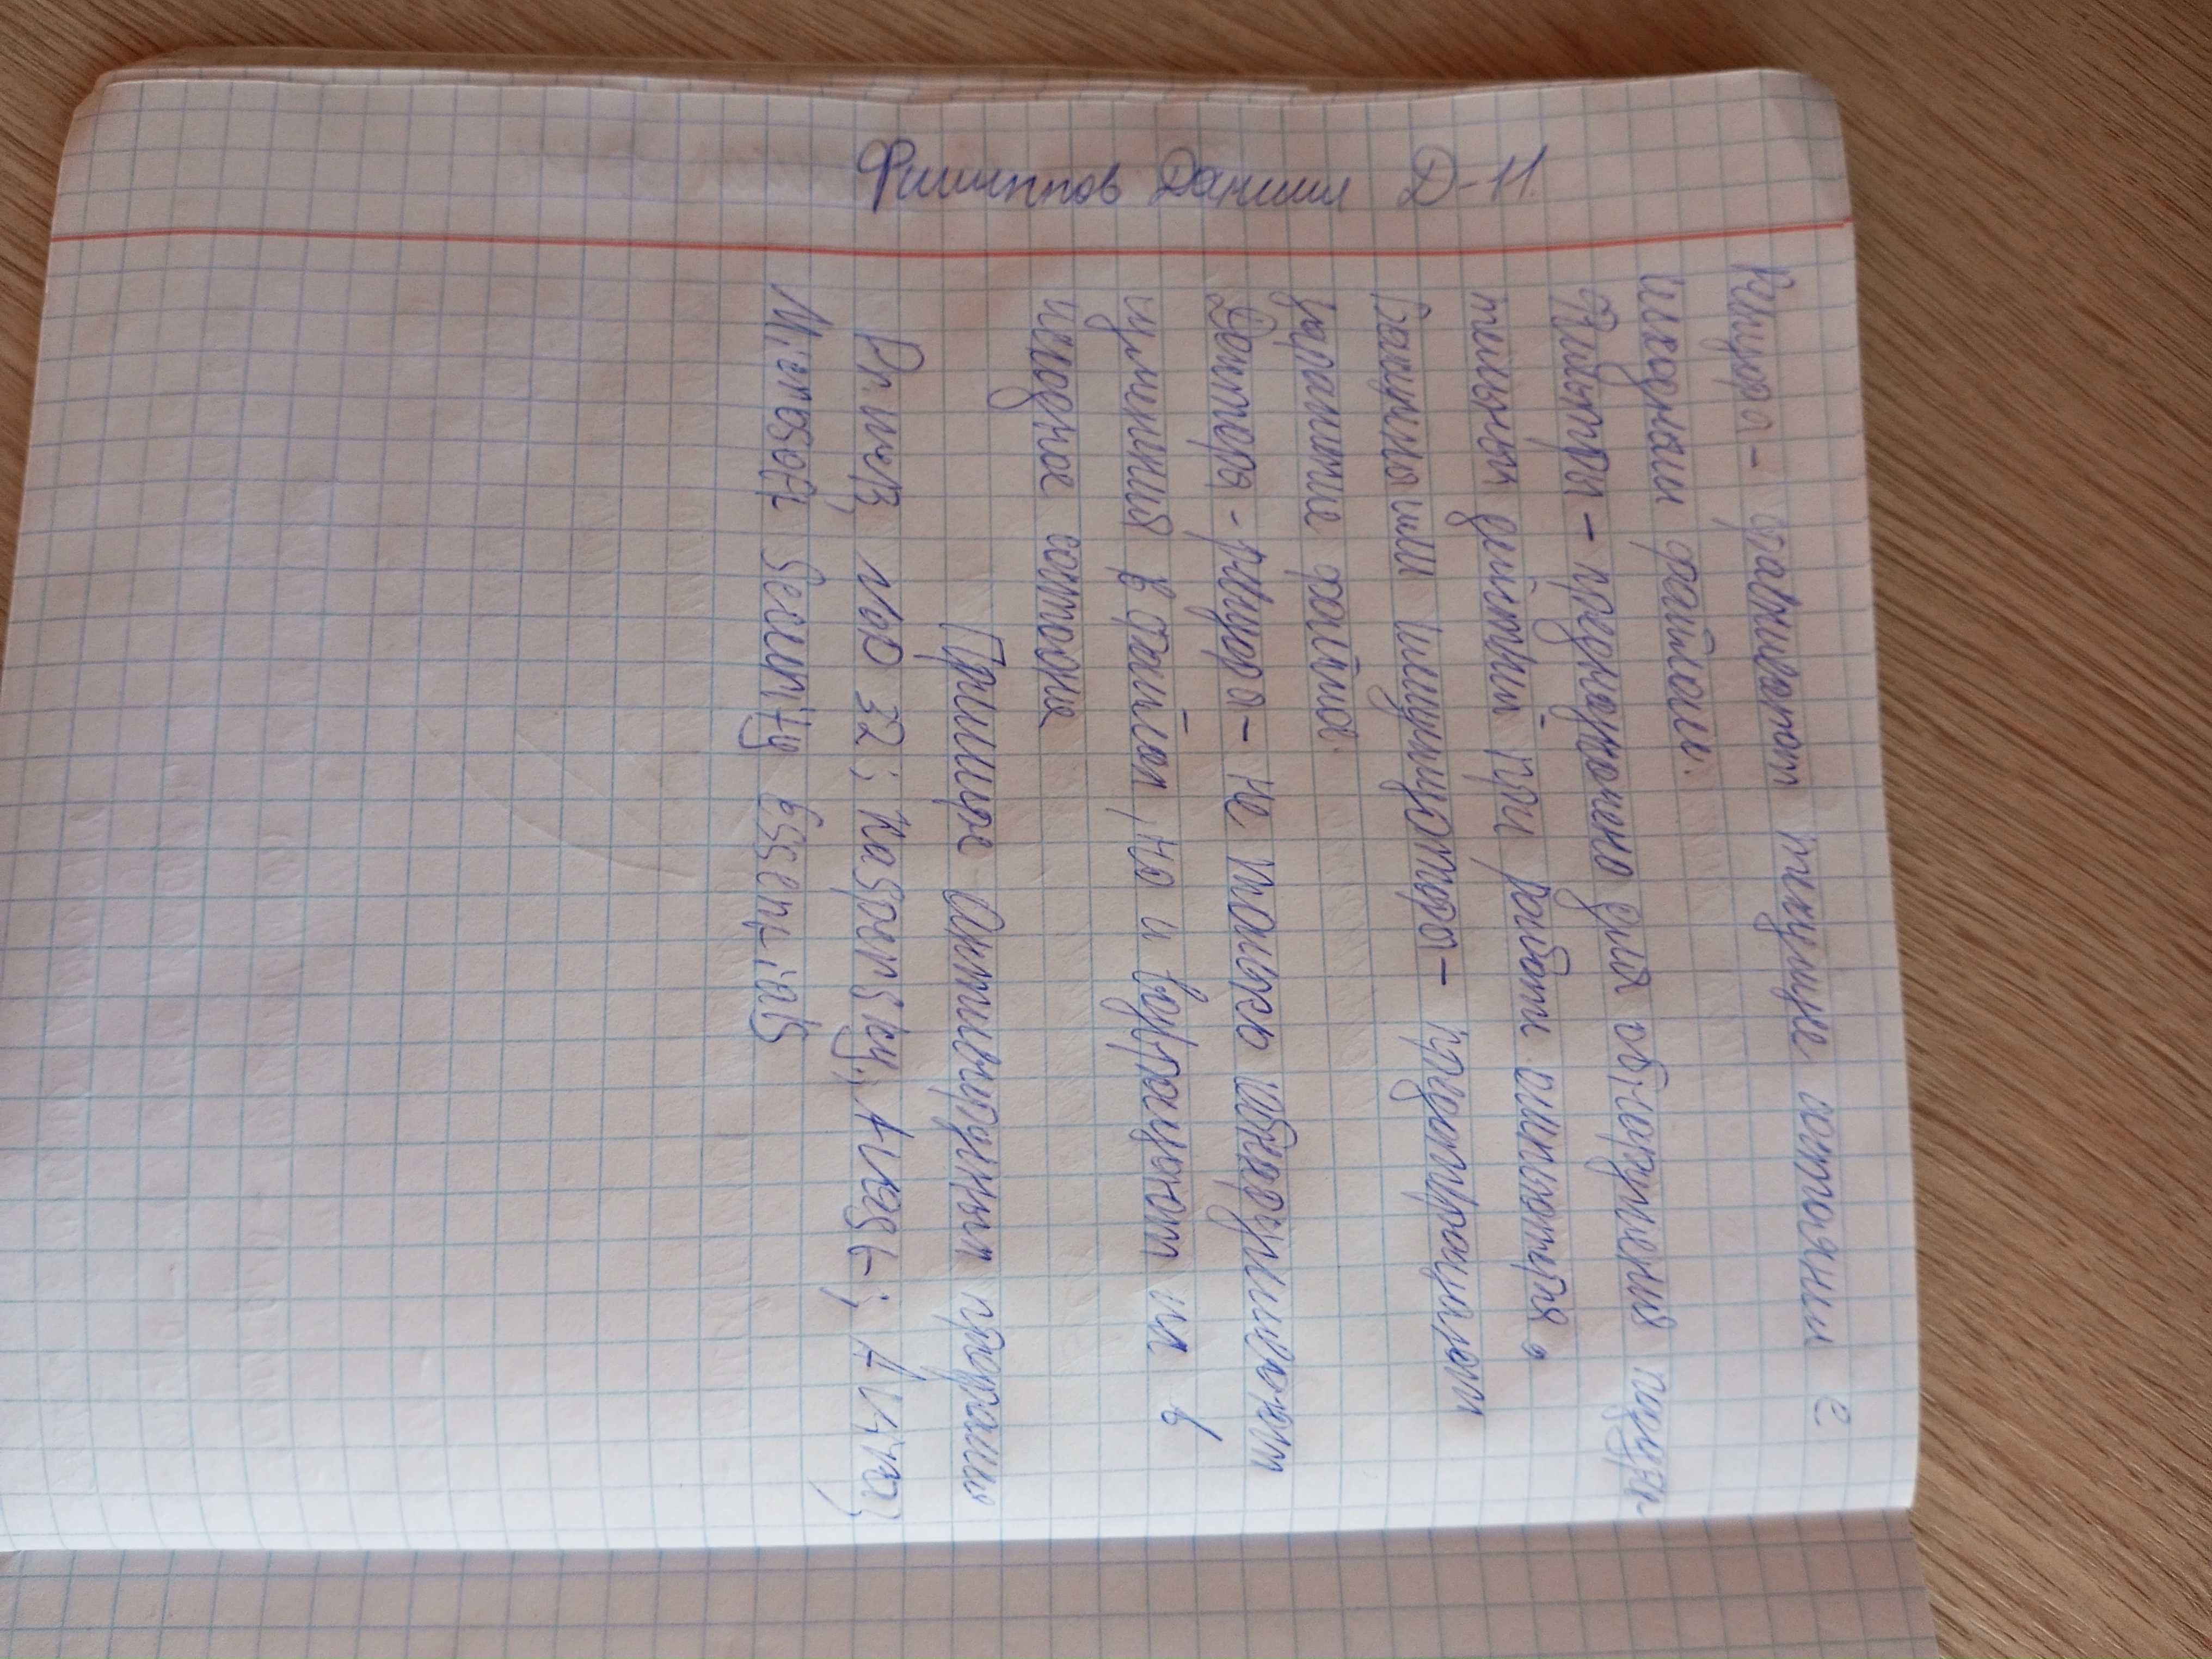 Филиппов Даниил Д-11.
Ревизоры - сравнивают текущее состояние с
исходными файлами.
Фильтры - предназначено для обнаружения подозри-
тельных действий при работе компьютера.
Вакцины или иммунизаторы - предотвращают
заражение файлов.
Доктора - ревизоры - не только
изменения в файлах, но и возвращают их в
исходное состояние
Примеры антивирусных программ
NOD 32; Kaspersky;
Microsoft Security Essentials